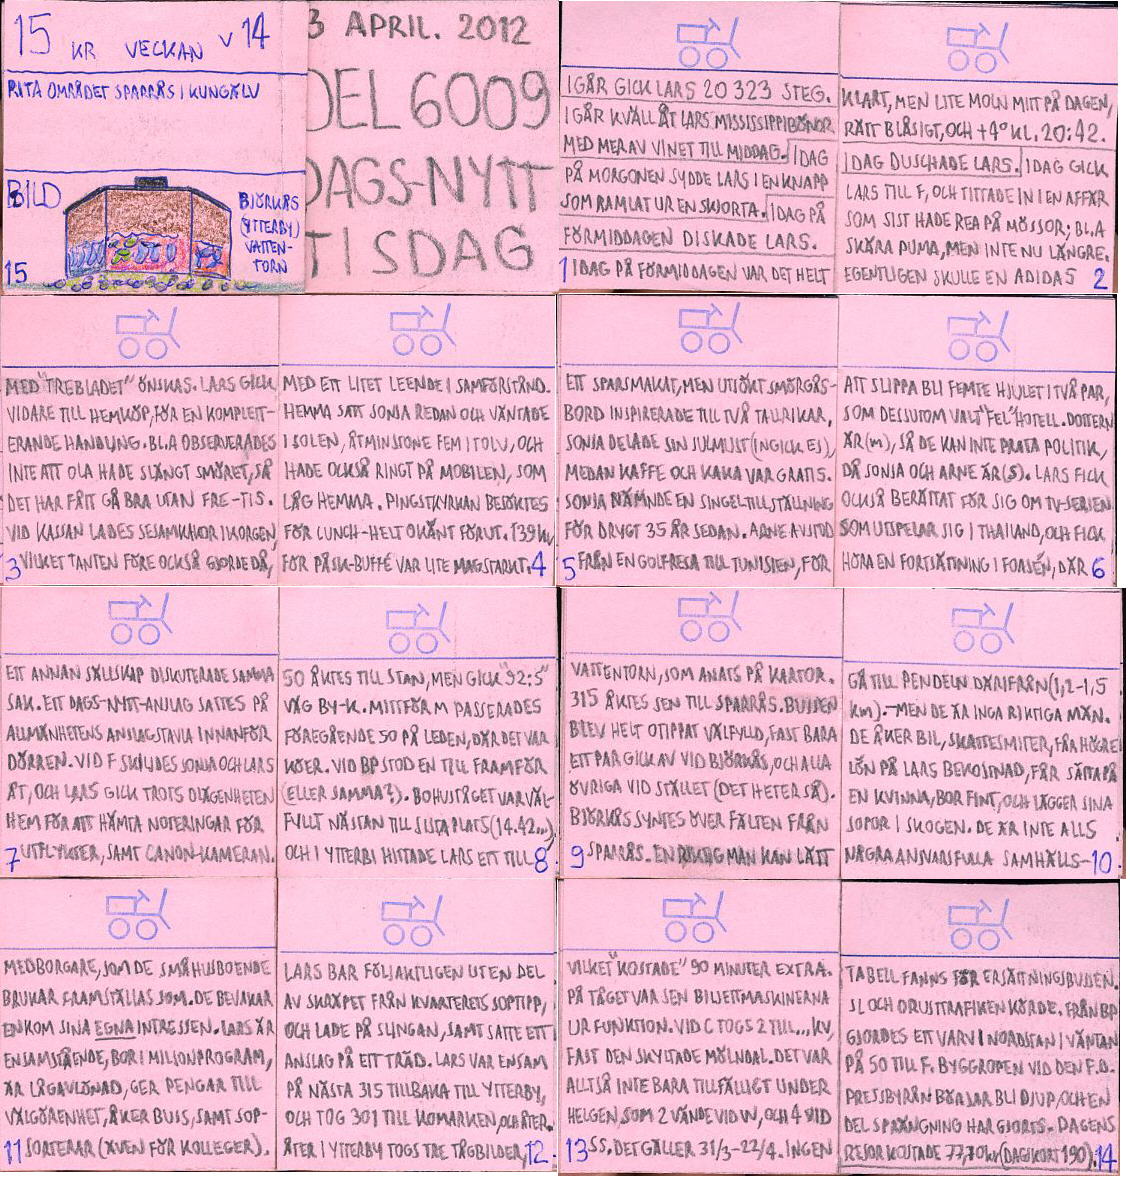 15 KR VECKAN V 14
RITA OMRÅDET SPARRÅS I KUNGÄLV
BILD
BJÖRKÅS
(YTTERBY)
VATTEN-
TORN
15
3 APRIL. 2012
DEL 6009
DAGS-NYTT
TISDAG
IGÅR GICK LARS 20 323 STEG.
IGÅR KVÄLL ÅT LARS MISSISSIPPIBÖNOR
MED MER AV VINET TILL MIDDAG. IDAG
PÅ MORGONEN SYDDE LARS I EN KNAPP
SOM RAMLAT UR EN SKJORTA. IDAG PÅ
FÖRMIDDAGEN DISKADE LARS.
1 IDAG PÅ FÖRMIDDAGEN VAR DET HELT
KLART, MEN LITE MOLN MITT PÅ DAGEN,
RÄTT BLÅSIGT, OCH +4° KL. 20:42.
IDAG DUSCHADE LARS. IDAG GICK
LARS TILL F, OCH TITTADE IN I EN AFFÄR
SOM SIST HADE REA PÅ MÖSSOR; BL.A
SKÄRA PUMA, MEN INTE NU LÄNGRE.
EGENTLIGEN SKULLE EN ADIDAS 2
MED "TREBLADET" ÖNSKAS. LARS GICK
VIDARE TILL HEMKÖP, FÖR EN KOMPLETT-
ERANDE HANDLING. BL.A OBSERVERADES
INTE ATT OLA HADE SLÄNGT SMÖRET, SÅ
DET HAR FÅTT GÅ BRA UTAN FRE-TIS.
VID KASSAN LADES SESAMKAKOR I KORGEN,
3 VILKET TANTEN FÖRE OCKSÅ GJORDE DÅ,
MED ETT LITET LEENDE I SAMFÖRSTÅND.
HEMMA SATT SONJA REDAN OCH VÄNTADE
I SOLEN, ÅTMINSTONE FEM I TOLV, OCH
HADE OCKSÅ RINGT PÅ MOBILEN, SOM
LÅG HEMMA. PINGSTKYRKAN BESÖKTES
FÖR LUNCH - HELT OKÄNT FÖRUT. 139 KR
FÖR PÅSK-BUFFÉ VAR LITE MAGSTARKT. 4
ETT SPARSMAKAT, MEN UTSÖKT SMÖRGÅS-
BORD INSPIRERADE TILL TVÅ TALLRIKAR,
SONJA DELADE SIN JULMUST (INGICK EJ),
MEDAN KAFFE OCH KAKA VAR GRATIS.
SONJA NÄMNDE EN SINGEL-TILLSTÄLLNING
FÖR DRYGT 35 ÅR SEDAN. ARNE AVSTOD
5 FRÅN EN GOLFRESA TILL TUNISIEN, FÖR
ATT SLIPPA BLI FEMTE HJULET I TVÅ PAR,
SOM DESSUTOM VALT "FEL" HOTELL. DOTTERN
ÄR (M), SÅ DE KAN INTE PRATA POLITIK,
DÅ SONJA OCH ARNE ÄR (S). LARS FICK
OCKSÅ BERÄTTAT FÖR SIG OM TV-SERIEN
SOM UTSPELAR SIG I THAILAND, OCH FICK
HÖRA EN FORTSÄTTNING I FOAJÉN, DÄR 6
ETT ANNAN SÄLLSKAP DISKUTERADE SAMMA
SAK. ETT DAGS-NYTT-ANSLAG SATTES PÅ
ALLMÄNHETENS ANSLAGSTAVLA INNANFÖR
DÖRREN. VID F SKILDES SONJA OCH LARS
ÅT, OCH LARS GICK TROTS OLÄGENHETEN
HEM FÖR ATT HÄMTA NOTERINGAR FÖR
7 UTFLYKTER, SAMT CANON-KAMERAN.
50 ÅKTES TILL STAN, MEN GICK "92:S"
VÄG BY-K. MITTFÖR M PASSERADES
FÖREGÅENDE 50 PÅ LEDEN, DÄR DET VAR
KÖER. VID BP STOD EN TILL FRAMFÖR
(ELLER SAMMA?). BOHUSTÅGET VAR VÄL-
FYLLT NÄSTAN TILL SISTA PLATS (14.42...),
OCH I YTTERBY HITTADE LARS ETT TILL 8
VATTENTORN, SOM ANATS PÅ KARTOR.
315 ÅKTES SEN TILL SPARRÅS. BUSSEN
BLEV HELT OTIPPAT VÄLFYLLD, FAST BARA
ETT PAR GICK AV VID BJÖRKÅS, OCH ALLA
ÖVRIGA VID STÄLLET (DET HETER SÅ).
BJÖRKÅS SYNTES ÖVER FÄLTEN FRÅN
9 SPARRÅS. EN RIKTIG MAN KAN LÄTT
GÅ TILL PENDELN DÄRIFRÅN (1,2-1,5
KM). - MEN DE ÄR INGA RIKTIGA MÄN.
DE ÅKER BIL, SKATTESMITER, FÅR HÖGRE
LÖN PÅ LARS BEKOSTNAD, FÅR SÄTTA PÅ
EN KVINNA, BOR FINT, OCH LÄGGER SINA
SOPOR I SKOGEN. DE ÄR INTE ALLS
NÅGRA ANSVARSFULLA SAMHÄLLS- 10
MEDBORGARE, SOM DE SMÅHUSBOENDE
BRUKAR FRAMSTÄLLAS SOM. DE BEVAKAR
ENKOM SINA EGNA INTRESSEN. LARS ÄR
ENSAMSTÅENDE, BOR I MILJONPROGRAM,
ÄR LÅGAVLÖNAD, GER PENGAR TILL
VÄLGÖRENHET, ÅKER BUSS, SAMT SOP-
11 SORTERAR (ÄVEN FÖR KOLLEGER).
LARS BAR FÖLJAKTLIGEN UT EN DEL
AV SKRÄPET FRÅN KVARTERETS SOPTIPP,
OCH LADE PÅ SLINGAN, SAMT SATTE ETT
ANSLAG PÅ ETT TRÄD. LARS VAR ENSAM
PÅ NÄSTA 315 TILLBAKA TILL YTTERBY,
OCH TOG 301 TILL KOMARKEN, OCH ÅTER.
ÅTER I YTTERBY TOGS TRE TÅGBILDER, 12
VILKET "KOSTADE" 90 MINUTER EXTRA.
PÅ TÅGET VAR SEN BILJETTMASKINERNA
UR FUNKTION. VID C TOGS 2 TILL... KV,
FAST DEN SKYLTADE MÖLNDAL. DET VAR
ALLTSÅ INTE BARA TILLFÄLLIGT UNDER
HELGEN, SOM 2 VÄNDE VID W, OCH 4 VID
13 SS. DET GÄLLER 31/3-22/4. INGEN
TABELL FANNS FÖR ERSÄTTNINGSBUSSEN.
SL OCH ORUSTTRAFIKEN KÖRDE. FRÅN BP
GJORDES ETT VARV I NORDSTAN I VÄNTAN
PÅ 50 TILL F. BYGGROPEN VID DEN F.D.
PRESSBYRÅN BÖRJAR BLI DJUP, OCH EN
DEL SPRÄNGNING HAR GJORTS. DAGENS
RESOR KOSTADE 77,70 KR (DAGKORT 190). 14